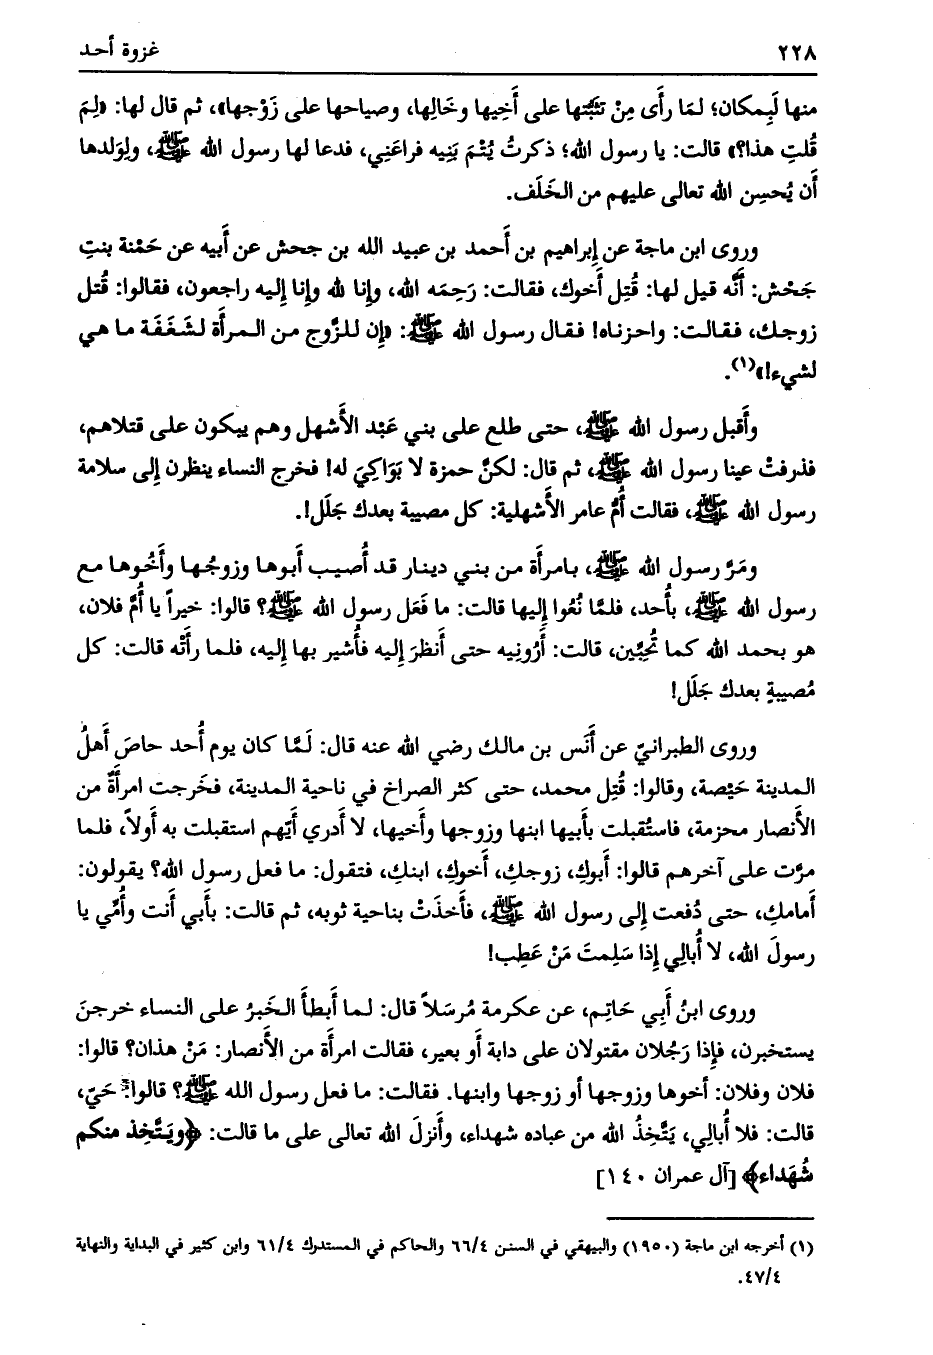 ٢٢٨ غزوة أحد
منها لَبِمكان؛ لمَا رأى مِنْ تثبّتها على أَخِيها وخَالِها، وصياحها على زَوْجها»، ثم قال لها: «لِمَ
قُلتِ هذا؟» قالت: يا رسول الله؛ ذكرتُ يُتْمَ بَنِيه فراعَنِي، فدعا لها رسول الله ﷺ، ولِوَلدها
أن يُحسِن الله تعالى عليهم من الخَلَف.
وروى ابن ماجة عن إبراهيم بن أَحمد بن عبيد الله بن جحش عن أَبيه عن حَمْنة بنتِ
جَحْش: أَنَّه قيل لها: قُتِل أَخوك، فقالت: رَحِمَه الله، وإنا لله وإنا إليه راجعون، فقالوا: قُتل
زوجك، فقالت: واحزناه! فقال رسول الله ﷺ: «إن للزَّوج من المرأة لشَغَفَة ما هي
لشيء!»(١).
وأَقبل رسول الله ﷺ، حتى طلع على بني عَبْد الأَشهل وهم يبكون على قتلاهم،
فذرفتْ عينا رسول الله ﷺ، ثم قال: لكنَّ حمزة لا بَوَاكِيَ له! فخرج النساء ينظرن إلى سلامة
رسول الله ﷺ، فقالت أُمُّ عامر الأَشهلية: كل مصيبة بعدك جَلَل!.
ومَرَّ رسول الله ﷺ، بامرأة من بني دينار قد أُصيب أَبوها وزوجُها وأَخُوها مع
رسول الله ﷺ، بأُحد، فلمَّا نُعُوا إليها قالت: ما فَعَل رسول الله ﷺ؟ قالوا: خيراً يا أُمَّ فلان،
هو بحمد الله كما تُحِبِّين، قالت: أَرُونِيه حتى أَنظرَ إليه فأُشير بها إليه، فلما رأَتْه قالت: كل
مُصيبةٍ بعدك جَلَل!
وروى الطبرانيّ عن أَنَس بن مالك رضي الله عنه قال: لَمَّا كان يوم أُحد حاصَ أَهلُ
المدينة حَيْصة، وقالوا: قُتِل محمد، حتى كثر الصراخ في ناحية المدينة، فخَرجت امرأَةٌ من
الأَنصار محزمة، فاستُقبلت بأَبيها ابنها وزوجها وأَخيها، لا أَدري أَيّهم استقبلت به أَولاً، فلما
مرَّت على آخرهم قالوا: أَبوكِ، زوجكِ، أَخوكِ، ابنكِ، فتقول: ما فعل رسول الله؟ يقولون:
أمامكِ، حتى دُفعت إلى رسول الله ﷺ، فأَخذَتْ بناحية ثوبه، ثم قالت: بأَبي أنت وأُمِّي يا
رسولَ الله، لا أُبالِي إذا سَلِمتَ مَنْ عَطِب!
وروى ابنُ أَبِي حَاتِم، عن عكرمة مُرسَلاً قال: لما أَبطأَ الخَبرُ على النساء خرجنَ
يستخبرن، فإذا رَجُلان مقتولان على دابة أَو بعير، فقالت امرأة من الأَنصار: مَنْ هذان؟ قالوا:
فلان وفلان: أخوها وزوجها أو زوجها وابنها. فقالت: ما فعل رسول الله ﷺ؟ قالوا: حَيّ،
قالت: فلا أُبالِي، يَتَّخِذُ الله من عباده شهداء، وأَنزلَ الله تعالى على ما قالت: ﴿ويَتَّخِذ منكم
شُهَداء﴾ [آل عمران ١٤٠]
(١) أخرجه ابن ماجة (١٩٥٠) والبيهقي في السنن ٦٦/٤ والحاكم في المستدرك ٦١/٤ وابن كثير في البداية والنهاية
٤٧/٤.